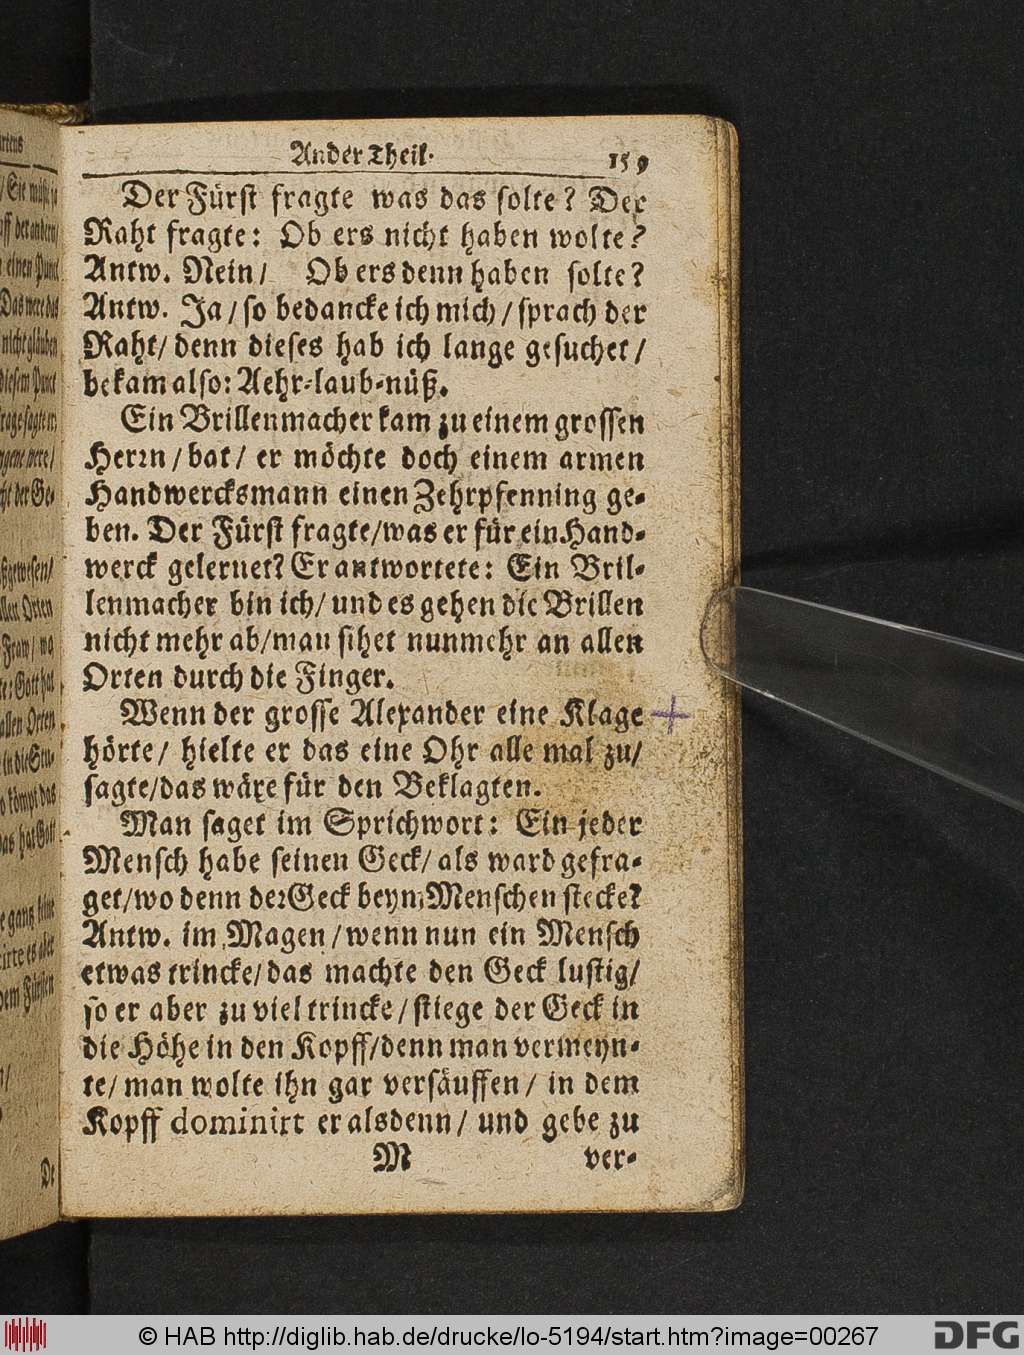 Ander Theil. 159
Der Fürst fragte was das solte? Der
Raht fragte: Ob ers nicht haben wolte?
Antw. Nein/ Ob ers denn haben solte?
Antw. Ja/so bedancke ich mich/sprach der
Raht/denn dieses hab ich lange gesuchet/
bekam also: Aehr-laub-nüß.
Ein Brillenmacher kam zu einem grossen
Herrn/bat/ er möchte doch einem armen
Handwercksmann einen Zehrpfenning ge-
ben. Der Fürst fragte/was er für ein Hand-
werck gelernet? Er antwortete: Ein Bril-
lenmacher bin ich/und es gehen die Brillen
nicht mehr ab/man sihet nunmehr an allen
Orten durch die Finger.
Wenn der grosse Alexander eine Klage
hörte/ hielte er das eine Ohr alle mal zu/
sagte/das wäre für den Beklagten.
Man saget im Sprichwort: Ein jeder
Mensch habe seinen Geck/als ward gefra-
get/wo denn der Geck beym Menschen stecke?
Antw. im Magen/wenn nun ein Mensch
etwas trincke/das machte den Geck lustig/
so er aber zu viel trincke/stiege der Geck in
die Höhe in den Kopff/denn man vermeyn-
te/man wolte ihn gar versäuffen/ in dem
Kopff dominirt er alsdenn/ und gebe zu
M ver-
© HAB http://diglib.hab.de/drucke/lo-5194/start.htm?image=00267
DFG